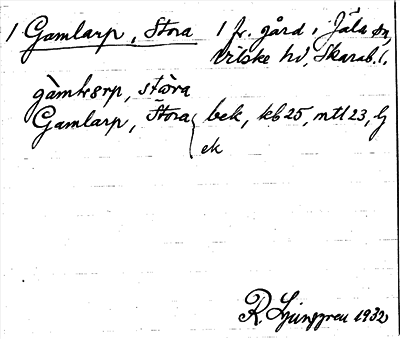 1 Gamlarp, Stora 1 fr. gård i Jäla sn,
Vilske hd, Skarab. l.
Gamlarp, Stora bek, kb 25, mtl 23, Gj
ek
R. Ljunggren 1932